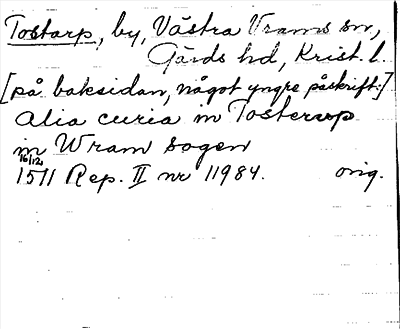 Tostarp, by, Västra Vrams sn,
Gärds hd, Krist. l.
[på baksidan, något yngre påskrift:]
alia curia in Tosterup
in Wram sogen
16/12
1511 Rep. II nr 11984. orig.